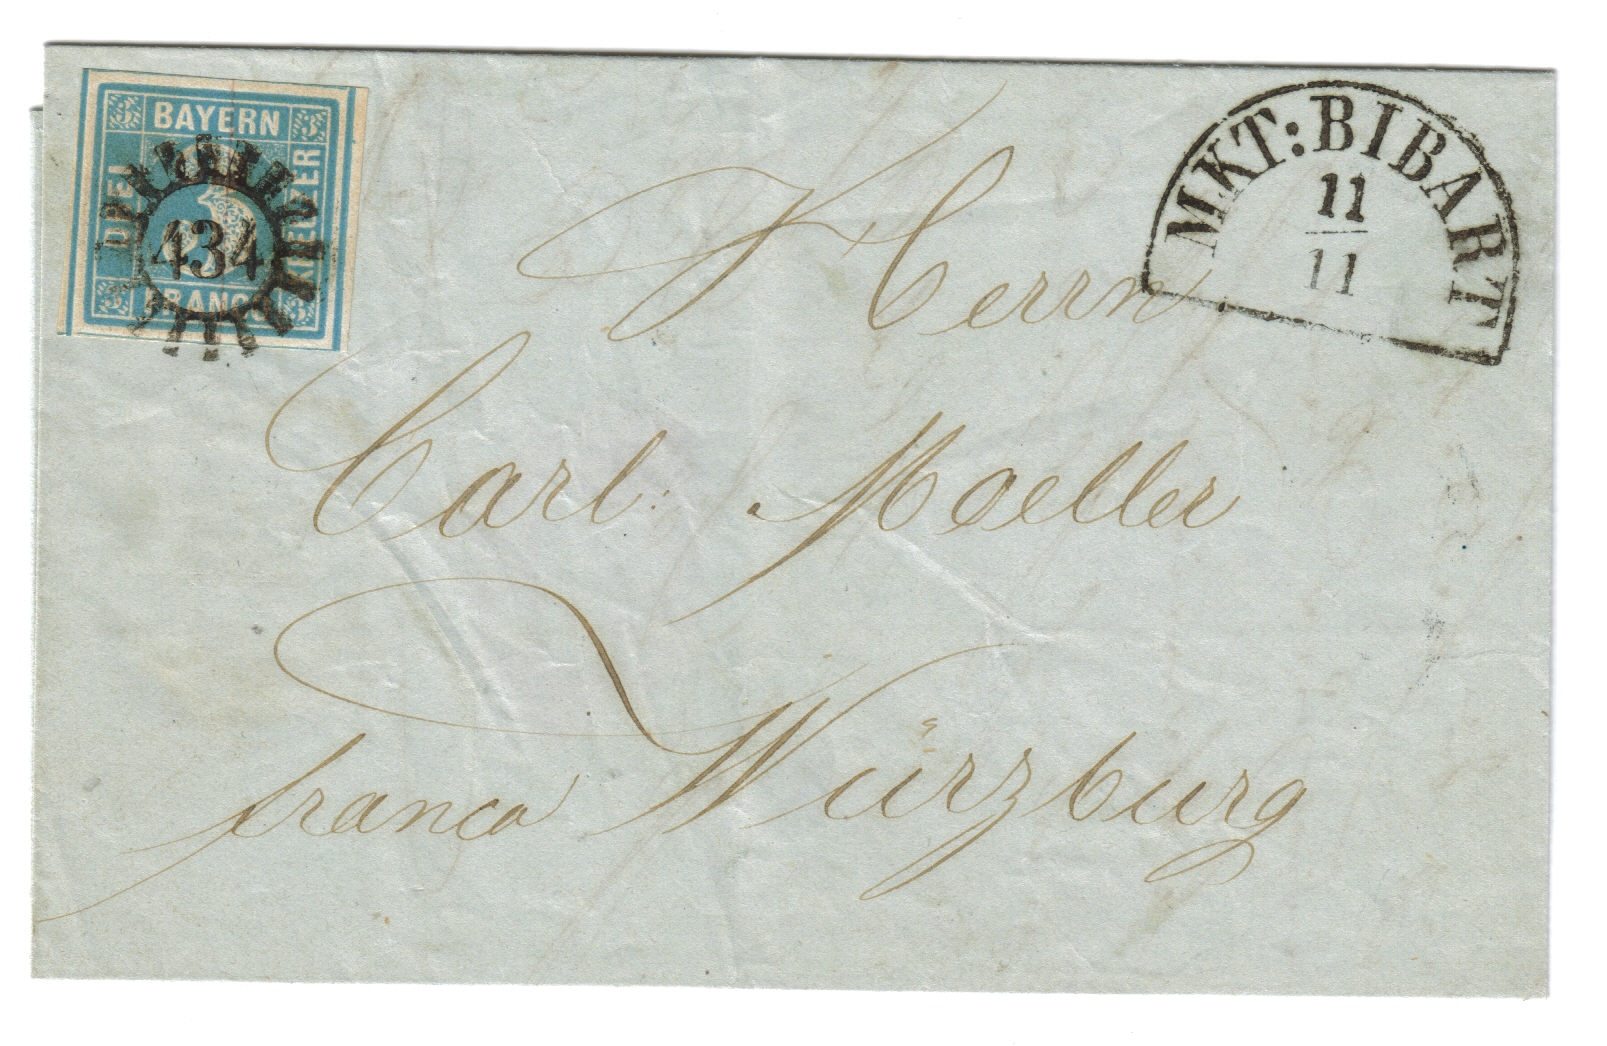 3 BAYERN 3
DREI
KREUZER
434
3 FRANCO 3
MKT: BIBART
11
11
Herrn
Carl Moeller
franco Würzburg